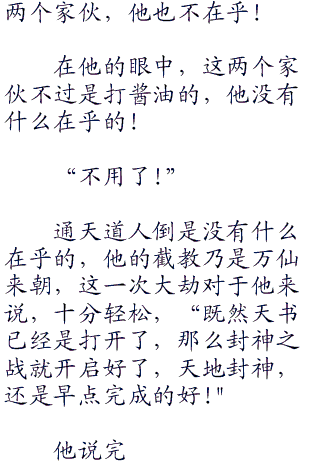 两个家伙，他也不在乎！
在他的眼中，这两个家
伙不过是打酱油的，他没有
什么在乎的！
“不用了！”
通天道人倒是没有什么
在乎的，他的截教乃是万仙
来朝，这一次大劫对于他来
说，十分轻松，“既然天书
已经是打开了，那么封神之
战就开启好了，天地封神，
还是早点完成的好！"
他说完